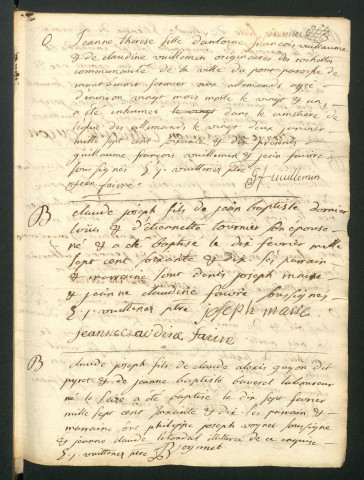 Jeanne therese fille d'antoine françois vuillaume
& de claudine vuillemin originaires des
communauté de la ville du paroisse de
montbenoit fermier aux allemands agée
d'environ vingt mois morte le vingt & un
a été inhumée dans le cimetière de
l'église des allemands le vingt deux janvier
mille sept cent soixante & dix presents
guillaume françois vuillemin & jean faivre
soussignés
jean faivre vuillemin
B
claude joseph fils de jean baptiste dornier
& d'étiennette tournier son épouse
né & a été baptisé le dix fevrier mille
sept cent soixante & dix ses parrain
& marraine sont denis joseph maire
& jeanne claudine faivre soussignés
joseph maire
jeanne claudine faivre
B
claude joseph fils de claude alexis guyon dit
& de jeanne baptiste laboureur
né le seize a été baptisé le dix sept fevrier
mille sept cent soixante & dix ses parrain &
marraine ont philippe joseph voynet soussigné
& jeanne claude illitérée de ce enquise
voynet